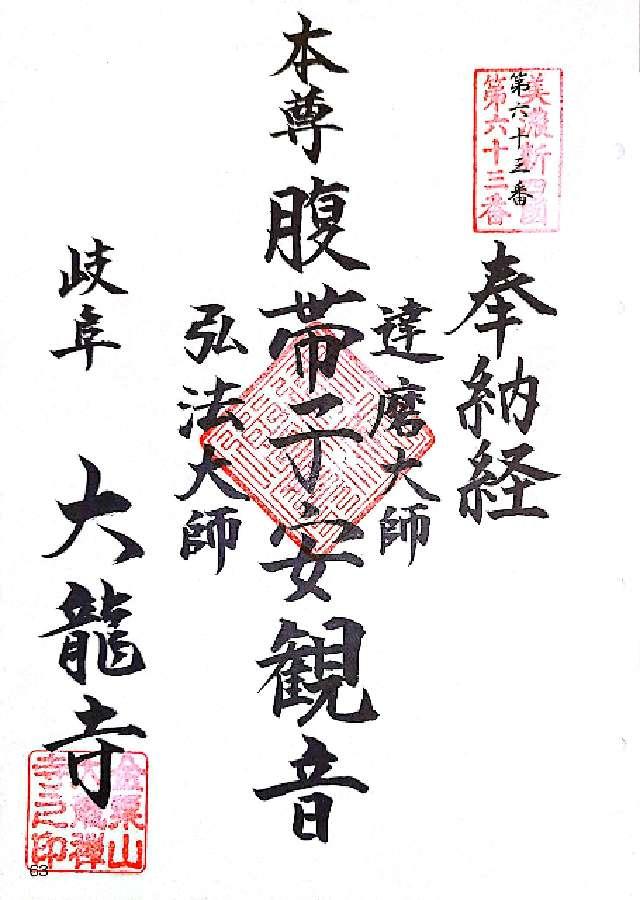 美濃新四國
第六十三番
第六十三番
奉納経
達磨大師
本尊 腹帯子安観音
弘法大師
岐阜 大龍寺
金粟山
大龍禅
寺之印
63